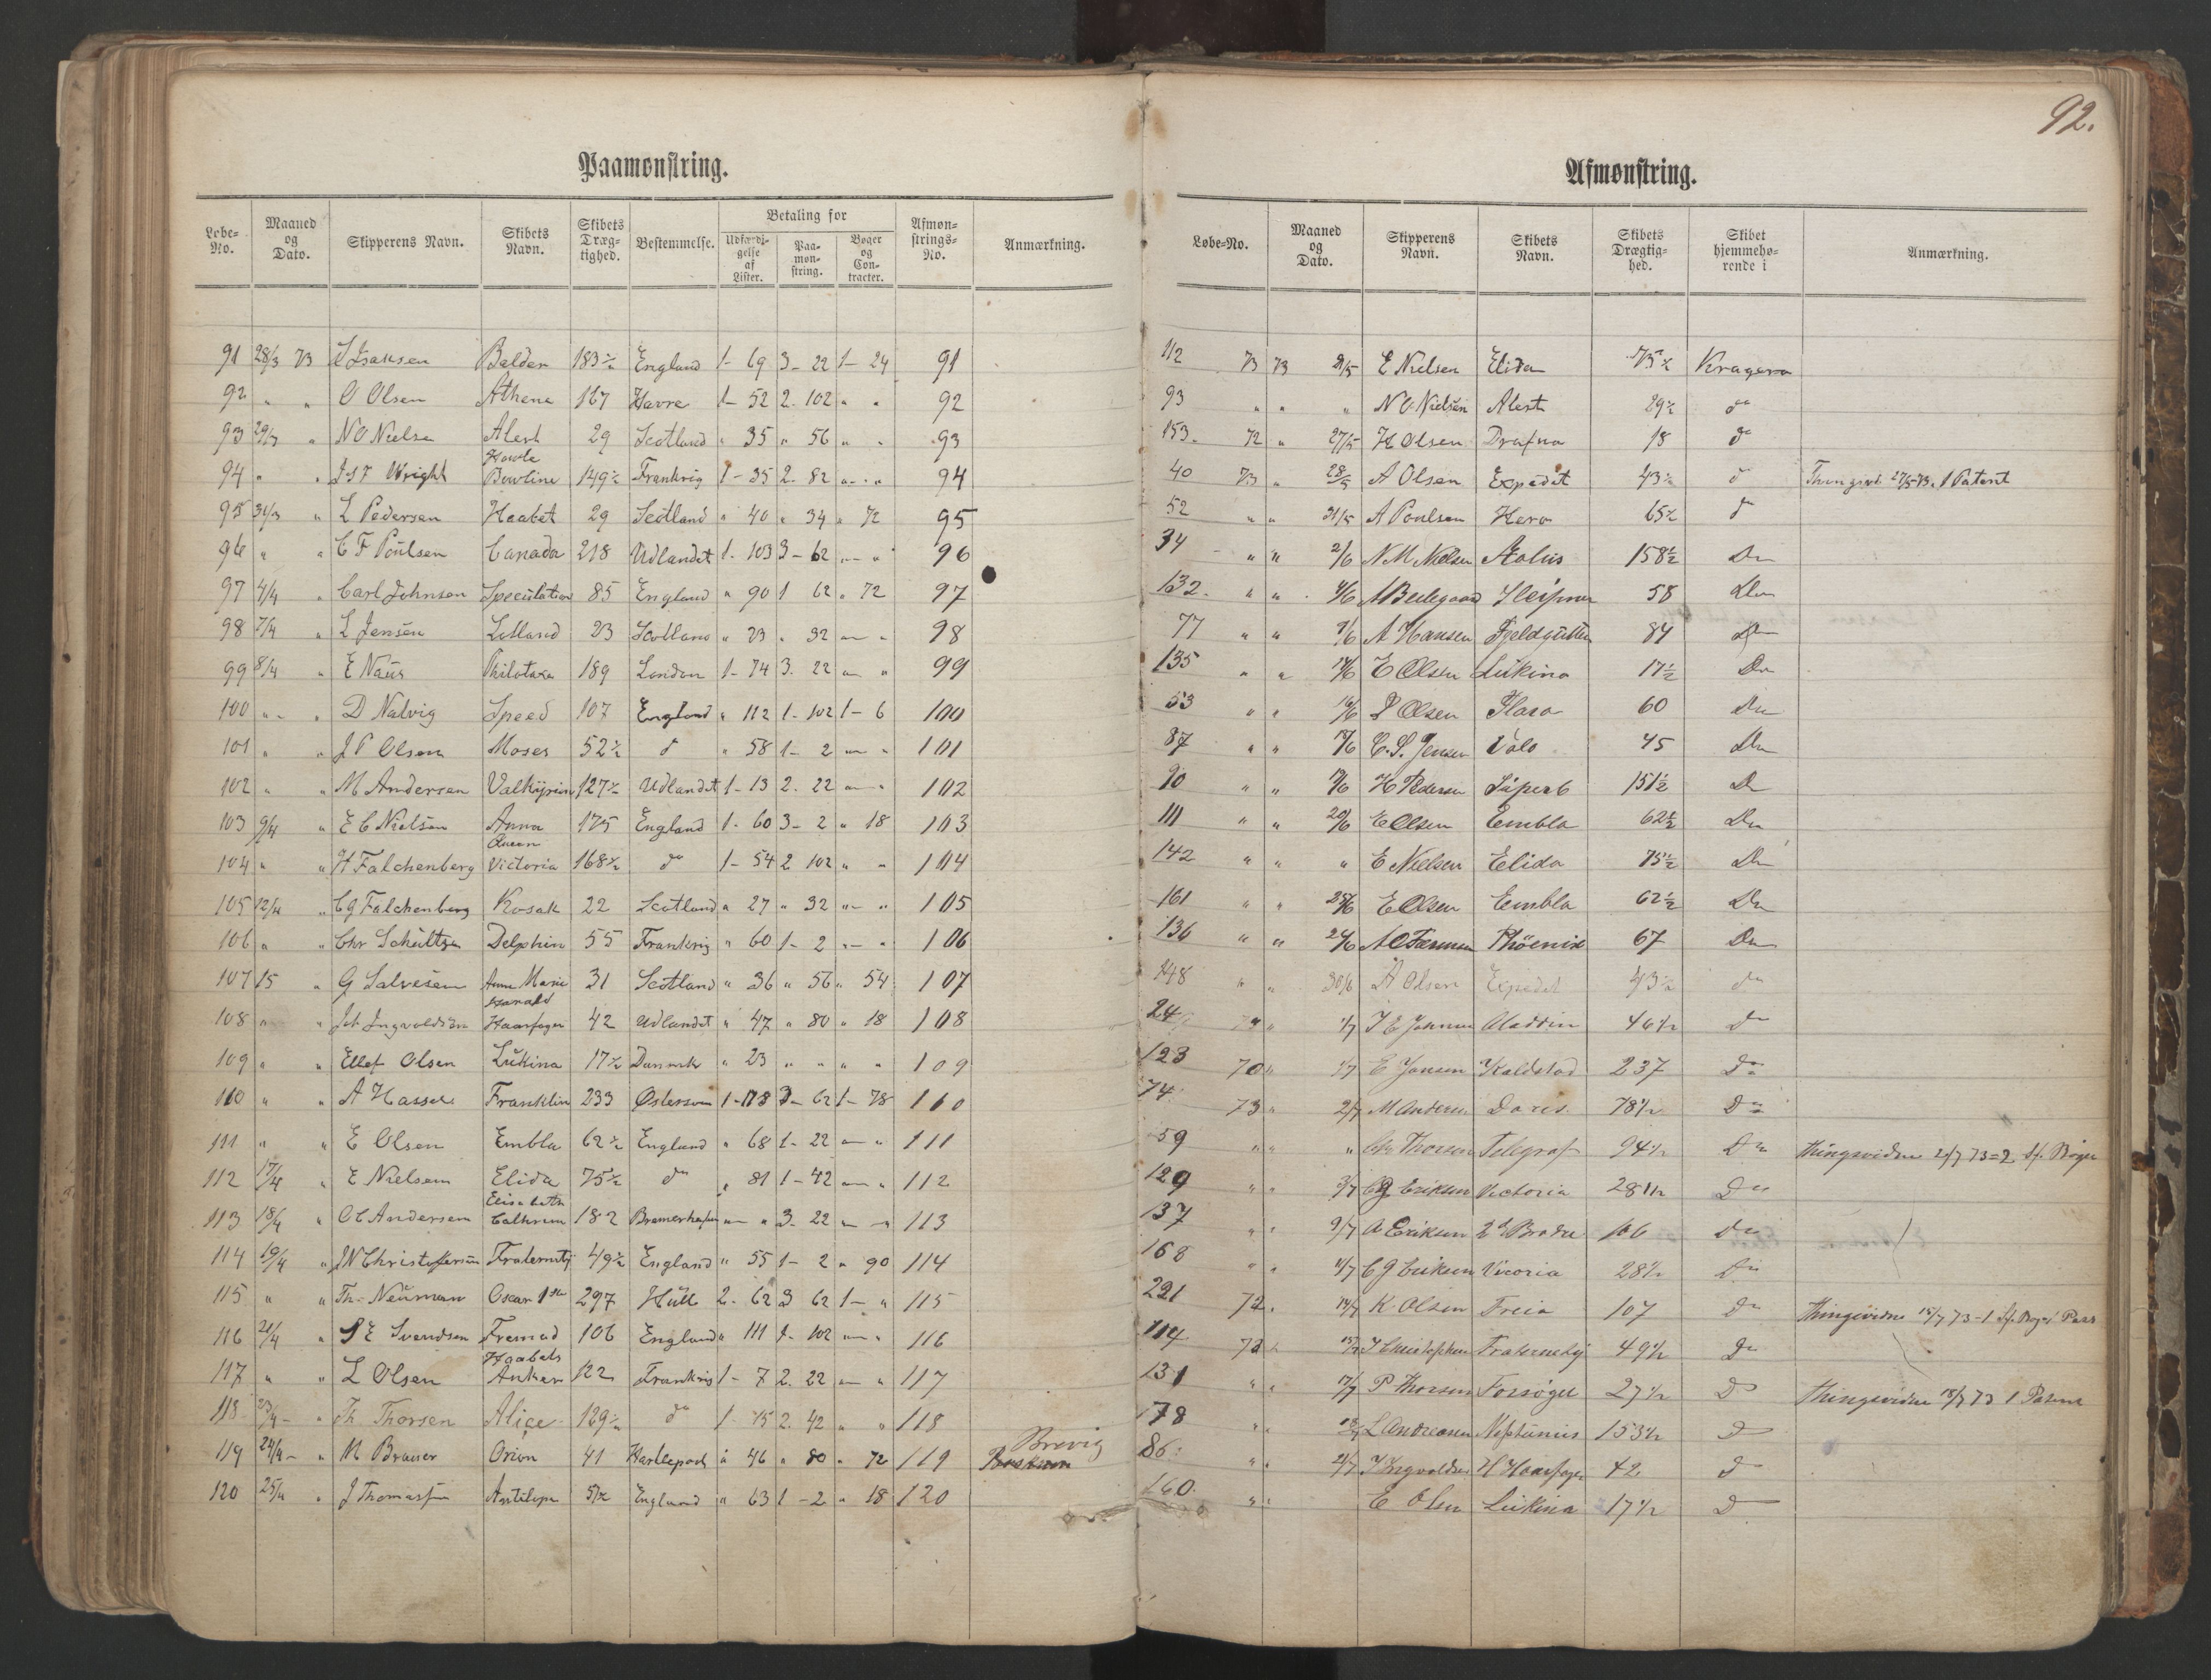 92.
Paamønstring.
Løbe-No. Maaned og Dato. Skipperens Navn. Skibets Navn. Skibets Dræg-tighed. Bestemmelse. Betaling for Udfærdi-gelse af Lister. Paa-møn-string. Bøger og Con-tracter. Afmøn-strings-No. Anmærkning.
91 28/3 73 Isaksen Balder 183½ England 1- 69 3- 22 1- 24 91
92 " " O Olsen Athene 167 Havre 1- 52 2. 102 " " 92
93 29/3 " N O Nielsen Alert 29 Scotland " 35 " 56 " " 93
94 " " Wright Howle Bowline 149½ Frankrig 1- 35 2. 82 " " 94
95 31/3 " L Pedersen Haabet 29 Scotland " 40 " 34 " 72 95
96 " " C F Poulsen Canada 218 Udlandet 1- 103 3- 62 " " 96
97 4/4 " Carl Johnsen Speculation 85 England " 90 1 62 " 72 97
98 7/4 " L Jensen 23 Scotland " 23 " 32 " " 98
99 8/4 " E Naus Philotaxe 189 London 1- 74 3. 22 " " 99
100 " " D Nalvig Speed 107 England " 112 1- 102 1- 6 100
101 " " J P Olsen Moses 52½ do " 58 1- 2 " " 101
102 " " M Andersen Valkyrien 127½ Udlandet 1- 13 2. 22 " " 102
103 9/4 " E C Nielsen Anna 175 England 1- 60 3- 2 " 18 103
104 " " H Falchenberg Queen Victoria 168½ do 1- 54 2 102 " " 104
105 12/4 " C G Falchenberg Kosak 22 Scotland " 27 " 32 " " 105
106 " " Chr Schultze Delphin 55 Frankrig " 60 1- 2 " " 106
107 15 " G Salvesen Anne Marie 31 Scotland " 36 " 56 " 54 107
108 " " Joh Ingvoldsen Harald Haarfager 42 Udlandet " 47 " 80 " 18 108
109 " " Ellef Olsen Lukina 17½ Danmark " 23 " " " " 109
110 " " A Hassel Franklin 233 Østersøen 1- 118 3- 62 1- 78 110
111 " " E Olsen Embla 62½ England " 68 1- 22 " " 111
112 17/4 " E Nielsen Elida 75½ do " 81 1- 42 " " 112
113 18/4 " O C Andersen Elisabeth 182 Bremerhafen " " 3- 22 " " 113
114 19/4 " Christoffersen Fraternity 49½ England " 55 1- 2 " 90 114
115 " " Th. Neuman Oscar 1ste 297 Hull 2- 62 3 62 1- " 115
116 21/4 " S E Svendsen Fremad 106 England " 111 1- 102 " " 116
117 " " L Olsen Haabets Anker 122 Frankrig 1- 7 2. 22 " " 117
118 23/4 " Th Thorsen Alice 129½ do 1- 15 2. 42 " " 118
119 24/4 " M Brauer Orion 41 Hartlepool " 46 " 80 " 72 119 Brevig
120 25/4 " J Thomassen Antilope 57½ England " 63 1- 2 " 18 120
Afmønstring.
Løbe-No. Maaned og Dato. Skipperens Navn. Skibets Navn. Skibets Drægtig-hed. Skibet hjemmehø-rende i Anmærkning.
112 73 73 21/5 E Nielsen Elida 75½ Kragerø
93 " " " N O Nielsen Alert 29½ do
153. 72 " 27/5 H Olsen Drafna 18 do
40 73 " 28/5 A Olsen Expedit 43½ do 27/5 73. 1 Patent
52 " " 31/5 A Poulsen Hero 65½ do
34 " " 2/6 N M Nielsen Æolus 158½ Do
132. " " 4/6 Sleipner 58 Do
77 " " 9/6 A Hansen Fjeldgutten 84 Do
135 " " E Olsen Lukina 17½ Do
53 " " 16/6 Olsen Flora 60 Do
87 " " C. S. Jensen Valo 45 Do
90 " " H Pedersen Superb 151½ Do
111 " " 20/6 E Olsen Embla 62½ Do
142 " " " E Nielsen Elida 75½ Do
161 " " E Olsen Embla 62½ Do
136 " " Phöenix 67 Do
148 " " 30/6 A Olsen Expedit 43½ do
24 " 1/7 Aladdin 46½ do
123 70 " 1/7 E Jensen Kaldstad 237 Do
74. 73 " 2/7 M Andersen Doris 78½ Do
59 " " " Thorsen Telegraf 94½ Do Thingsvidne 2/7 73=2 Sf. Bøger
129 " " 3/7 C G Eriksen Victoria 28½ Do
137 " " 9/7 A Eriksen 2de Brødre 106 Do
168 " " 11/7 C G Eriksen Vicoria 28½ Do
221 72. 14/7 K Olsen Freia 107 Do Thingsvidne 15/7 73-1 Sf. Bog 1 Pass
114. 73 " 15/7 Christophersen Fraternety 49½ Do
131 " " 17/7 P Thorsen Forsøget 27½ Do Thingsvidne 18/7 73 1 Patent
178 " " L Andreasen Neptunus 153½ Do
86. " " 21/7 J Ingvoldsen H Haarfager 42 Do
160. " " E Olsen Lukina 17½ Do